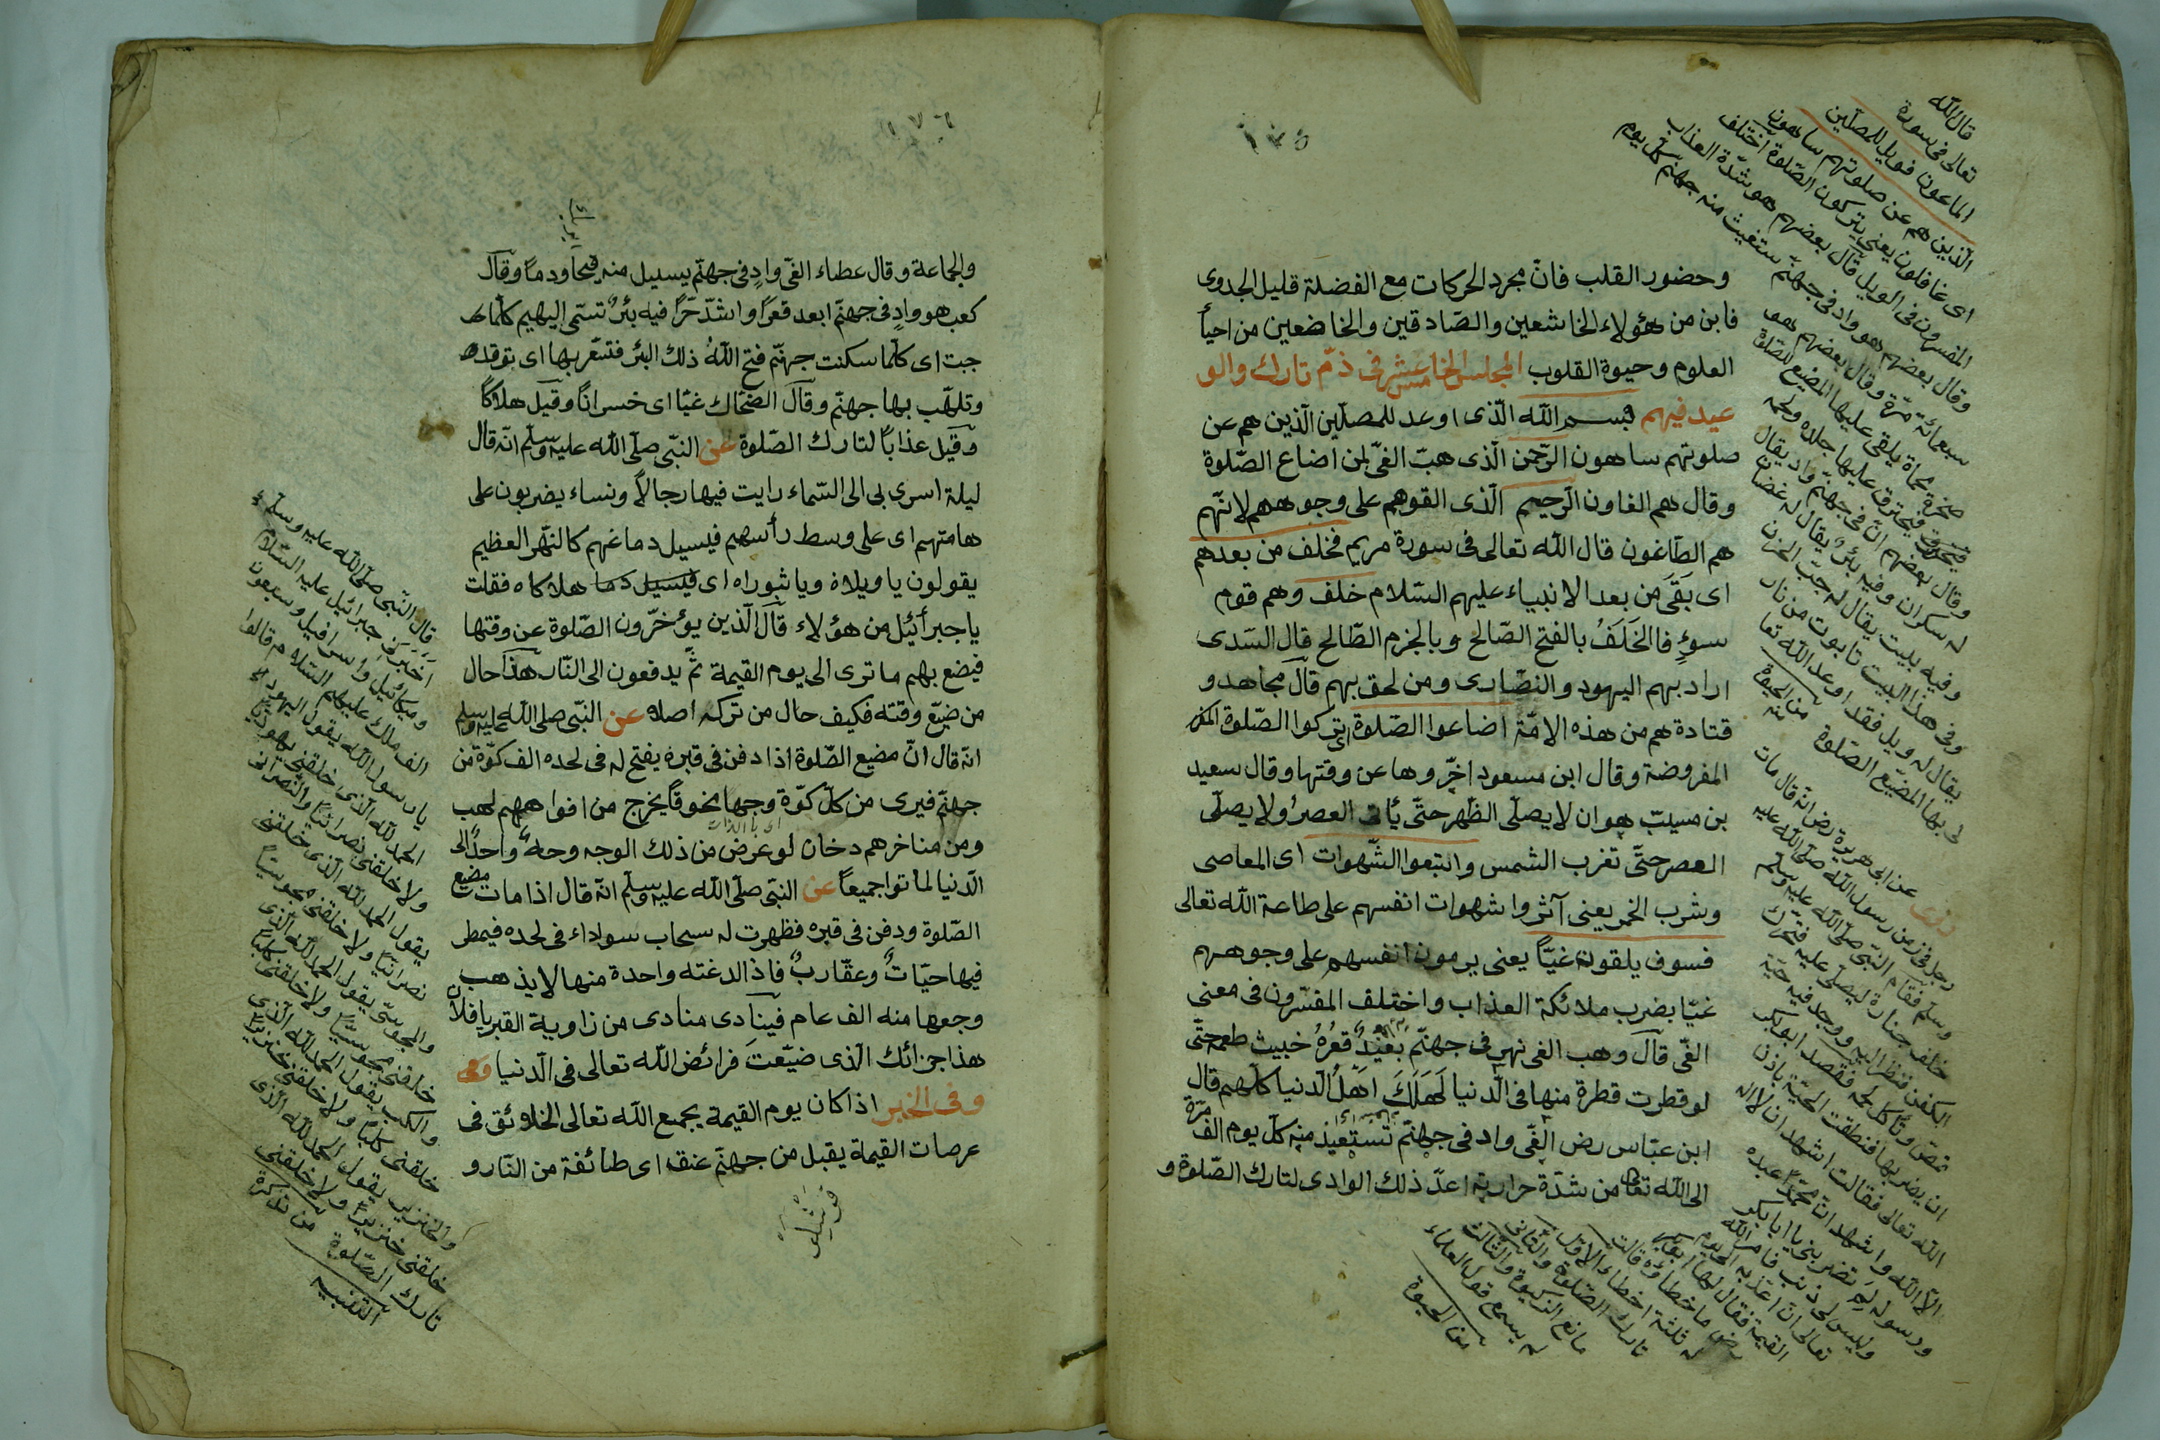 ١٧٥
وحضور القلب فانّ مجرد الحركات مع الفضلة قليل الجدوى
فابن من هؤلاء الخاشعين والصّادقين والخاضعين من احيأ
العلوم وحيوة القلوب المجلس الخامس عشر فى ذمّ تارك والو
عيد فيهم بسم اللّه الّذى اوعد للمصلّين الّذين هم عن
صلوتهم ساهون الرّحمن الّذى هبّ الغىّ لمن اضاع الصّلوة
وقال هم الغاون الرّحيم الّذى القوهم على وجوههم لانّهم
هم الطّاغون قال اللّه تعالى فى سورة مريم فخلف من بعدهم
اى بَقَىَ من بعد الانبياء عليهم السّلام خلف وهم قوم
سوءٍ فالخَلَفُ بالفتح الصّالح وبالجزم الطّالح قال السّدى
اراد بهم اليهود والنصّارى ومن لحق بهم قال مجاهد و
قتادة هم من هذه الامّة اضاعوا الصّلوة اى تركوا الصّلوة
المفروضة وقال ابن مسعود اخّروها عن وقتها وقال سعيد
بن مسيّب هو ان لا يصلّى الظّهر حتّى يأتى العصرُ ولا يصلّى
العصر حتّى تغرب الشمس واتّبعوا الشّهوات اى المعاصى
وشرب الخمر يعنى آثروا شهوات انفسهم على طاعة اللّه تعالى
فسوف يلقون غيّاً يعنى يرمون انفسهم على وجوههم
غيّا بضرب ملائكة العذاب واختلف المفسّرون فى معنى
الغّى قال وهب الغى نهر فى جهنّم بَعِيدٌ قعرُهُ خبيث طعمه حتّى
لو قطرت قطرة منها فى الّدنيا لَهَلَكَ اهلُ الّدنيا كلّهم قال
ابن عبّاس رض الغّى واد فى جهنّم تَسْتَعِيذ منه كلّ يوم الف مرّة
الى اللّه تعالى من شدّة حرارته اعدّ ذلك الوادى لتارك الصّلوة و
قال اللّه
تعالى فى سورة
الماعون فويل للمصلّين
الّذين هم عن صلوتهم ساهون
اى غافلون يعنى يتركون الصّلوة اختلف
المفسرون فى الويل قال بعضهم هو شدّة العذاب
وقال بعضهم هو واد فى جهنّم ستغيث منه جهنّم كلّ يوم
سبعمائة مرّة وقال بعضهم هو
وقال بعضهم انّ فى جهنّم واد يقال
له سكران وفيه بئر يقال له غضبان
وفيه بيت يقال له جبّ الحزن
وفى هذا البيت تابوت من نار
يقال له ويل فقد اوعد اللّه تعا
لى بها المضيّع الصّلوة من الحيوة
روى عن ابى هريرة رض انّه قال مات
رجل فى زمن رسول اللّه صلّى اللّه عليه
وسلّم فقام النّبى صلّى اللّه عليه وسلّم
خلف جنازة ليصلّى عليه فتحرّك
الكفن فنظر اليه ووجد فيه حيّة
تمصّ وتأكل لحمه فقصد ابو بكر
ان يضربها فنطقت الحيّة باذن
اللّه تعالى فقالت اشهد ان لا اله
الّا اللّه واشهد انّ محمّدا عبده
ورسوله لِمَ تضربنى يا ابا بكر
وليس لى ذنب فامر اللّه
تعالى ان اعذّبه الى يوم
القيمة فقال لها ابو بكر
رض ما خطاؤه قالت
له ثلثة اخطاء الاوّل
تارك الصّلوة والثّانى
مانع الزكوة والثّالث
لم يسمع قول العلماء
من الحيوة
١٧٦
والجماعة وقال عطاء الغّى وادٍ فى جهنّم يسيل منه قيحا ودماً وقال
كعب هو وادٍ فى جهنّم ابعد قعراً واشدّ حّراً فيه بئرٌ تسّمى الهيم كلّما
خبت اى كلّما سكنت جهنّم فتح اللّهُ ذلك البئر فتسّعر بها اى توقد
وتلهّب بها جهنّم وقال الضحّاك غيّا اى خسراناً وقيل هلاكاً
وقيل عذاباً لتارك الصّلوة عن النّبى صلّى اللّه عليه وسلّم انّه قال
ليلة اسرى بى الى السّماء رايت فيها رجالاً ونساء يضربون على
هامتهم اى على وسط رأسهم فيسيل دماغهم كالنهر العظيم
يقولون يا ويلاه ويا ثبوراه اى هلاكاه فقلت
يا جبرأئيل من هؤلاء قال الّذين يؤخّرون الصّلوة عن وقتها
فيضع بهم ما ترى الى يوم القيمة ثمّ يدفعون الى النّار هذا حال
من ضيّع وقته فكيف حال من تركه اصلا عن النّبى صلى اللّه عليه وسلم
انه قال انّ مضيع الصّلوة اذا دفن فى قبره يفتح له فى لحده الف كوّة من
جهنّم فيرى من كلّ كوّة وجها مخوفاً يخرج من افواههم لهب
ومن مناخرهم دخان لو عرض من ذلك الوجه وجه واحدٌ الى
الّدنيا لماتوا جميعاً عن النبّى صلّى اللّه عليه وسلّم انّه قال اذا مات مضيع
الصّلوة ودفن فى قبره فظهرت له سحاب سوداء فى لحده فيمطر
فيها حيّاتٌ وعقّاربٌ فاذا لدغته واحدة منها لا يذهب
وجعها منه الف عام فينادى منادى من زاوية القبر يا فلان
هذا جزائك الّذى ضيّعتَ فرائض اللّه تعالى فى الّدنيا
وفى الخبر اذا كان يوم القيمة يجمع اللّه تعالى الخلائق فى
عرصات القيمة يقبل من جهنّم عنق اى طائفة من النّار و
قال النّبى صلّى اللّه عليه وسلّم
اخبرنى جبرائيل عليه السّلام
وميكائيل واسرافيل وسبعون
الف ملك عليهم السّلام قالوا
يا رسول اللّه يقول اليهودى
الحمد للّه الّذى خلقنى يهوديّا
ولا خلقنى نصرانيّا والنّصرانى
يقول الحمد للّه الّذى خلقنى
نصرانيّا ولا خلقنى مجوسيّاً
والمجوسّى يقول الحمد للّه الّذى
خلقنى مجوسيّاً ولا خلقنى كلبا
والكلب يقول الحمد للّه الّذى
خلقنى كلباً ولا خلقنى خنزيراً
والخنزير يقول الحمد للّه الّذى
خلقنى خنزيراً ولا خلقنى
تارك الصّلوة من تذكرة
التّنبيه